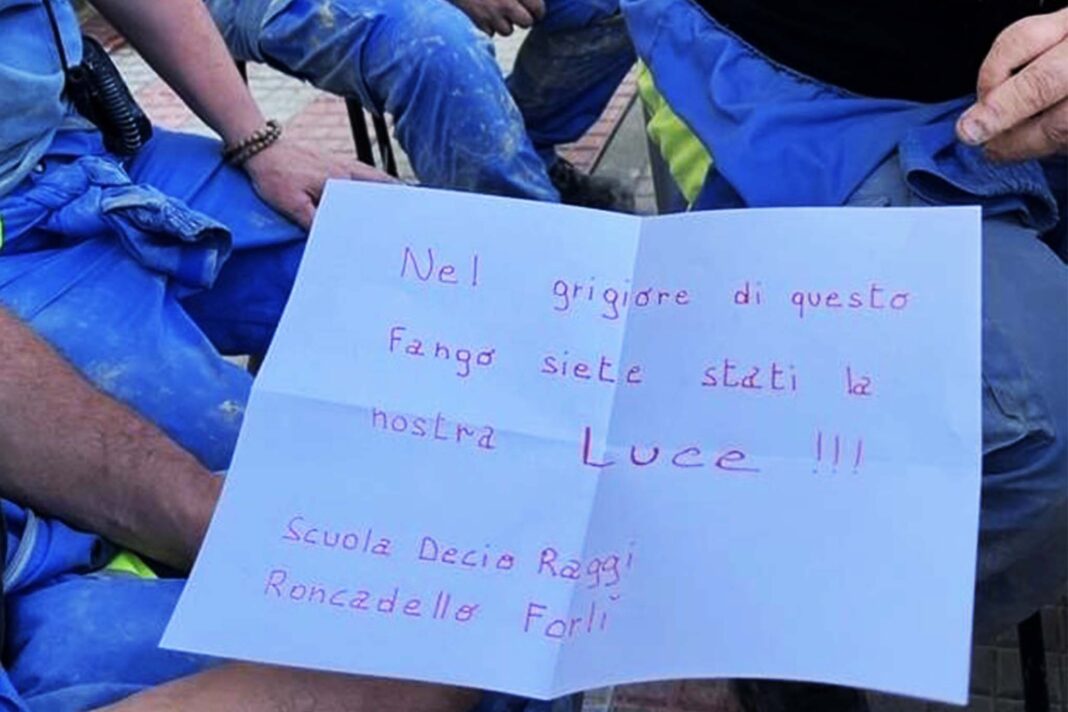 Nel grigiore di questo
Fango siete stati la
nostra Luce !!!
Scuola Decio Raggi
Roncadello Forlì